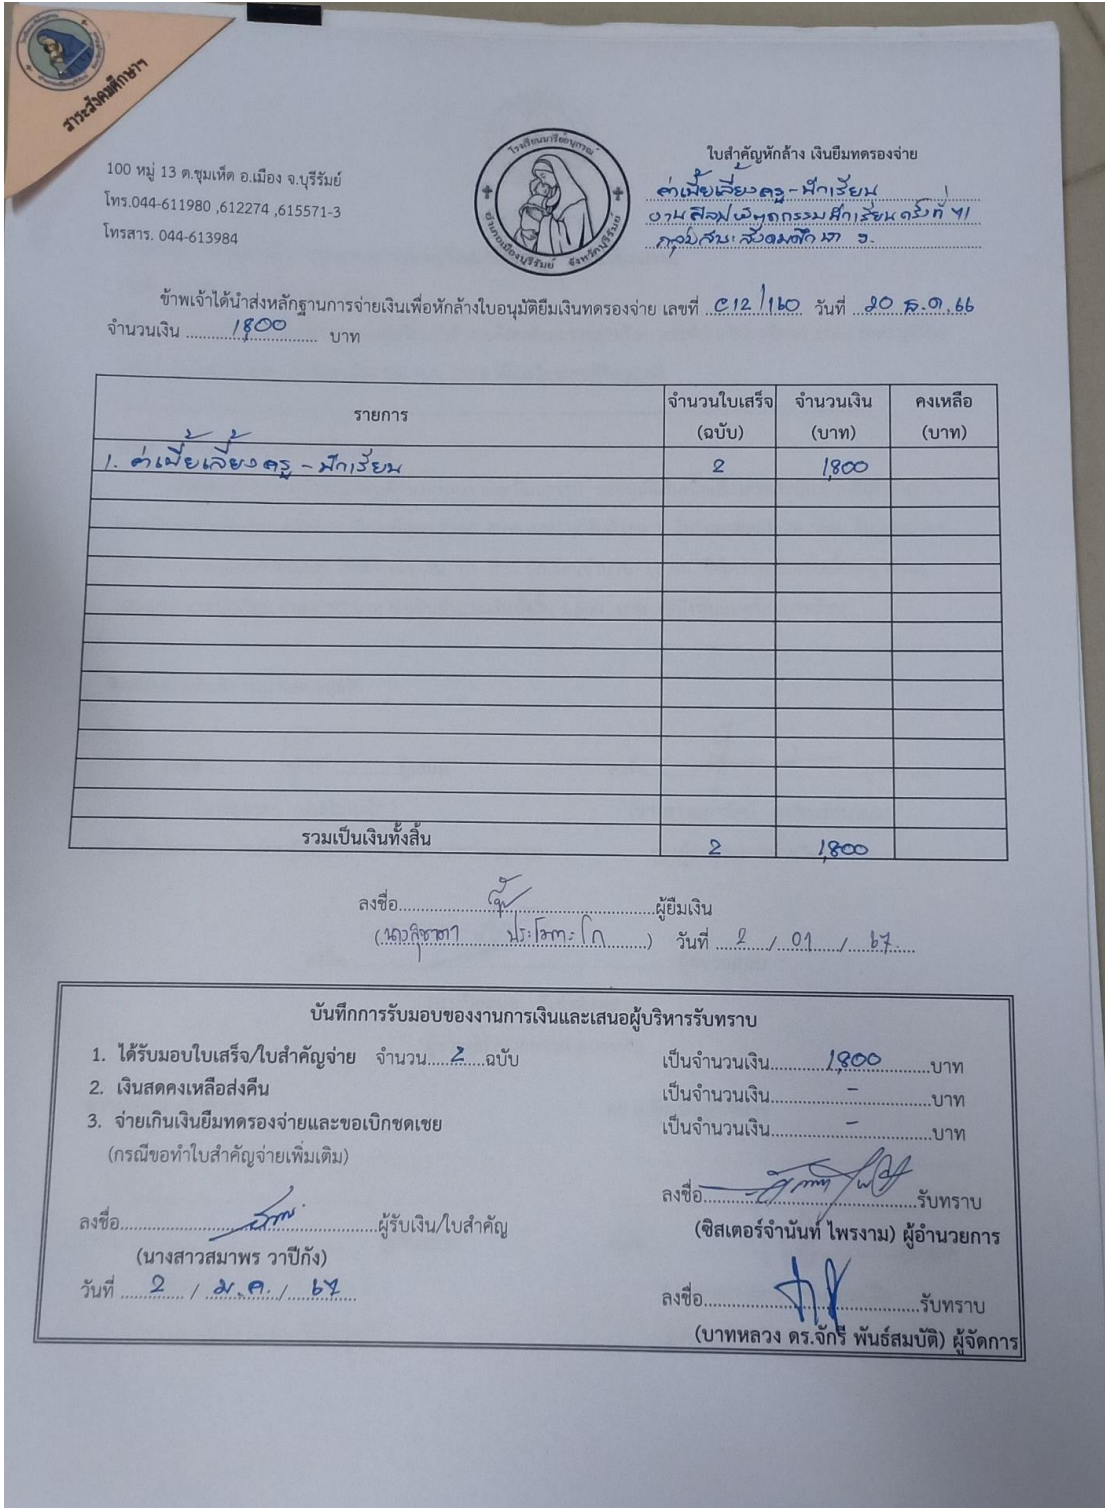 สาระสังคมศึกษาฯ
โรงเรียนมารีย์อนุสรณ์
อำเภอเมืองบุรีรัมย์ จังหวัดบุรีรัมย์
100 หมู่ 13 ต.ชุมเห็ด อ.เมือง จ.บุรีรัมย์
โทร.044-611980 ,612274 ,615571-3
โทรสาร. 044-613984
ใบสำคัญหักล้าง เงินยืมทดรองจ่าย
ค่าเบี้ยเลี้ยงครู-นักเรียน
งานศิลปหัตถกรรมนักเรียนครั้งที่ 71
กลุ่มสาระสังคมศึกษา ฯ
ข้าพเจ้าได้นำส่งหลักฐานการจ่ายเงินเพื่อหักล้างใบอนุมัติยืมเงินทดรองจ่าย เลขที่ C12/160 วันที่ 20 ธ.ค. 66
จำนวนเงิน 1,800 บาท
รายการ จำนวนใบเสร็จ (ฉบับ) จำนวนเงิน (บาท) คงเหลือ (บาท)
1. ค่าเบี้ยเลี้ยงครู - นักเรียน 2 1,800
รวมเป็นเงินทั้งสิ้น 2 1,800
ลงชื่อ ผู้ยืมเงิน
(นางสุชาดา) วันที่ 2 / 01 / 67
บันทึกการรับมอบของงานการเงินและเสนอผู้บริหารรับทราบ
1. ได้รับมอบใบเสร็จ/ใบสำคัญจ่าย จำนวน 2 ฉบับ เป็นจำนวนเงิน 1,800 บาท
2. เงินสดคงเหลือส่งคืน เป็นจำนวนเงิน - บาท
3. จ่ายเกินเงินยืมทดรองจ่ายและขอเบิกชดเชย เป็นจำนวนเงิน - บาท
(กรณีขอทำใบสำคัญจ่ายเพิ่มเติม)
ลงชื่อ ผู้รับเงิน/ใบสำคัญ
(นางสาวสมาพร วาปีกัง)
วันที่ 2 / ม.ค. / 67
ลงชื่อ รับทราบ
(ซิสเตอร์จำนันท์ ไพรงาม) ผู้อำนวยการ
ลงชื่อ รับทราบ
(บาทหลวง ดร.จักรี พันธ์สมบัติ) ผู้จัดการ